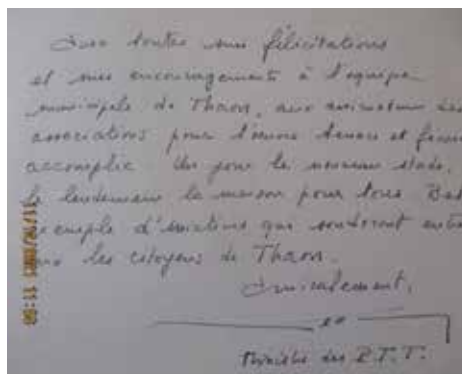 Avec toutes mes félicitations
et mes encouragements à l'équipe
municipale de Thaon, aux animateurs des
associations pour l'œuvre tenace et
accomplie. Un jour le nouveau stade,
le lendemain la maison pour tous.
exemple d'initiatives qui souderont entre
les citoyens de Thaon.
Amicalement,
Ministre des P.T.T.